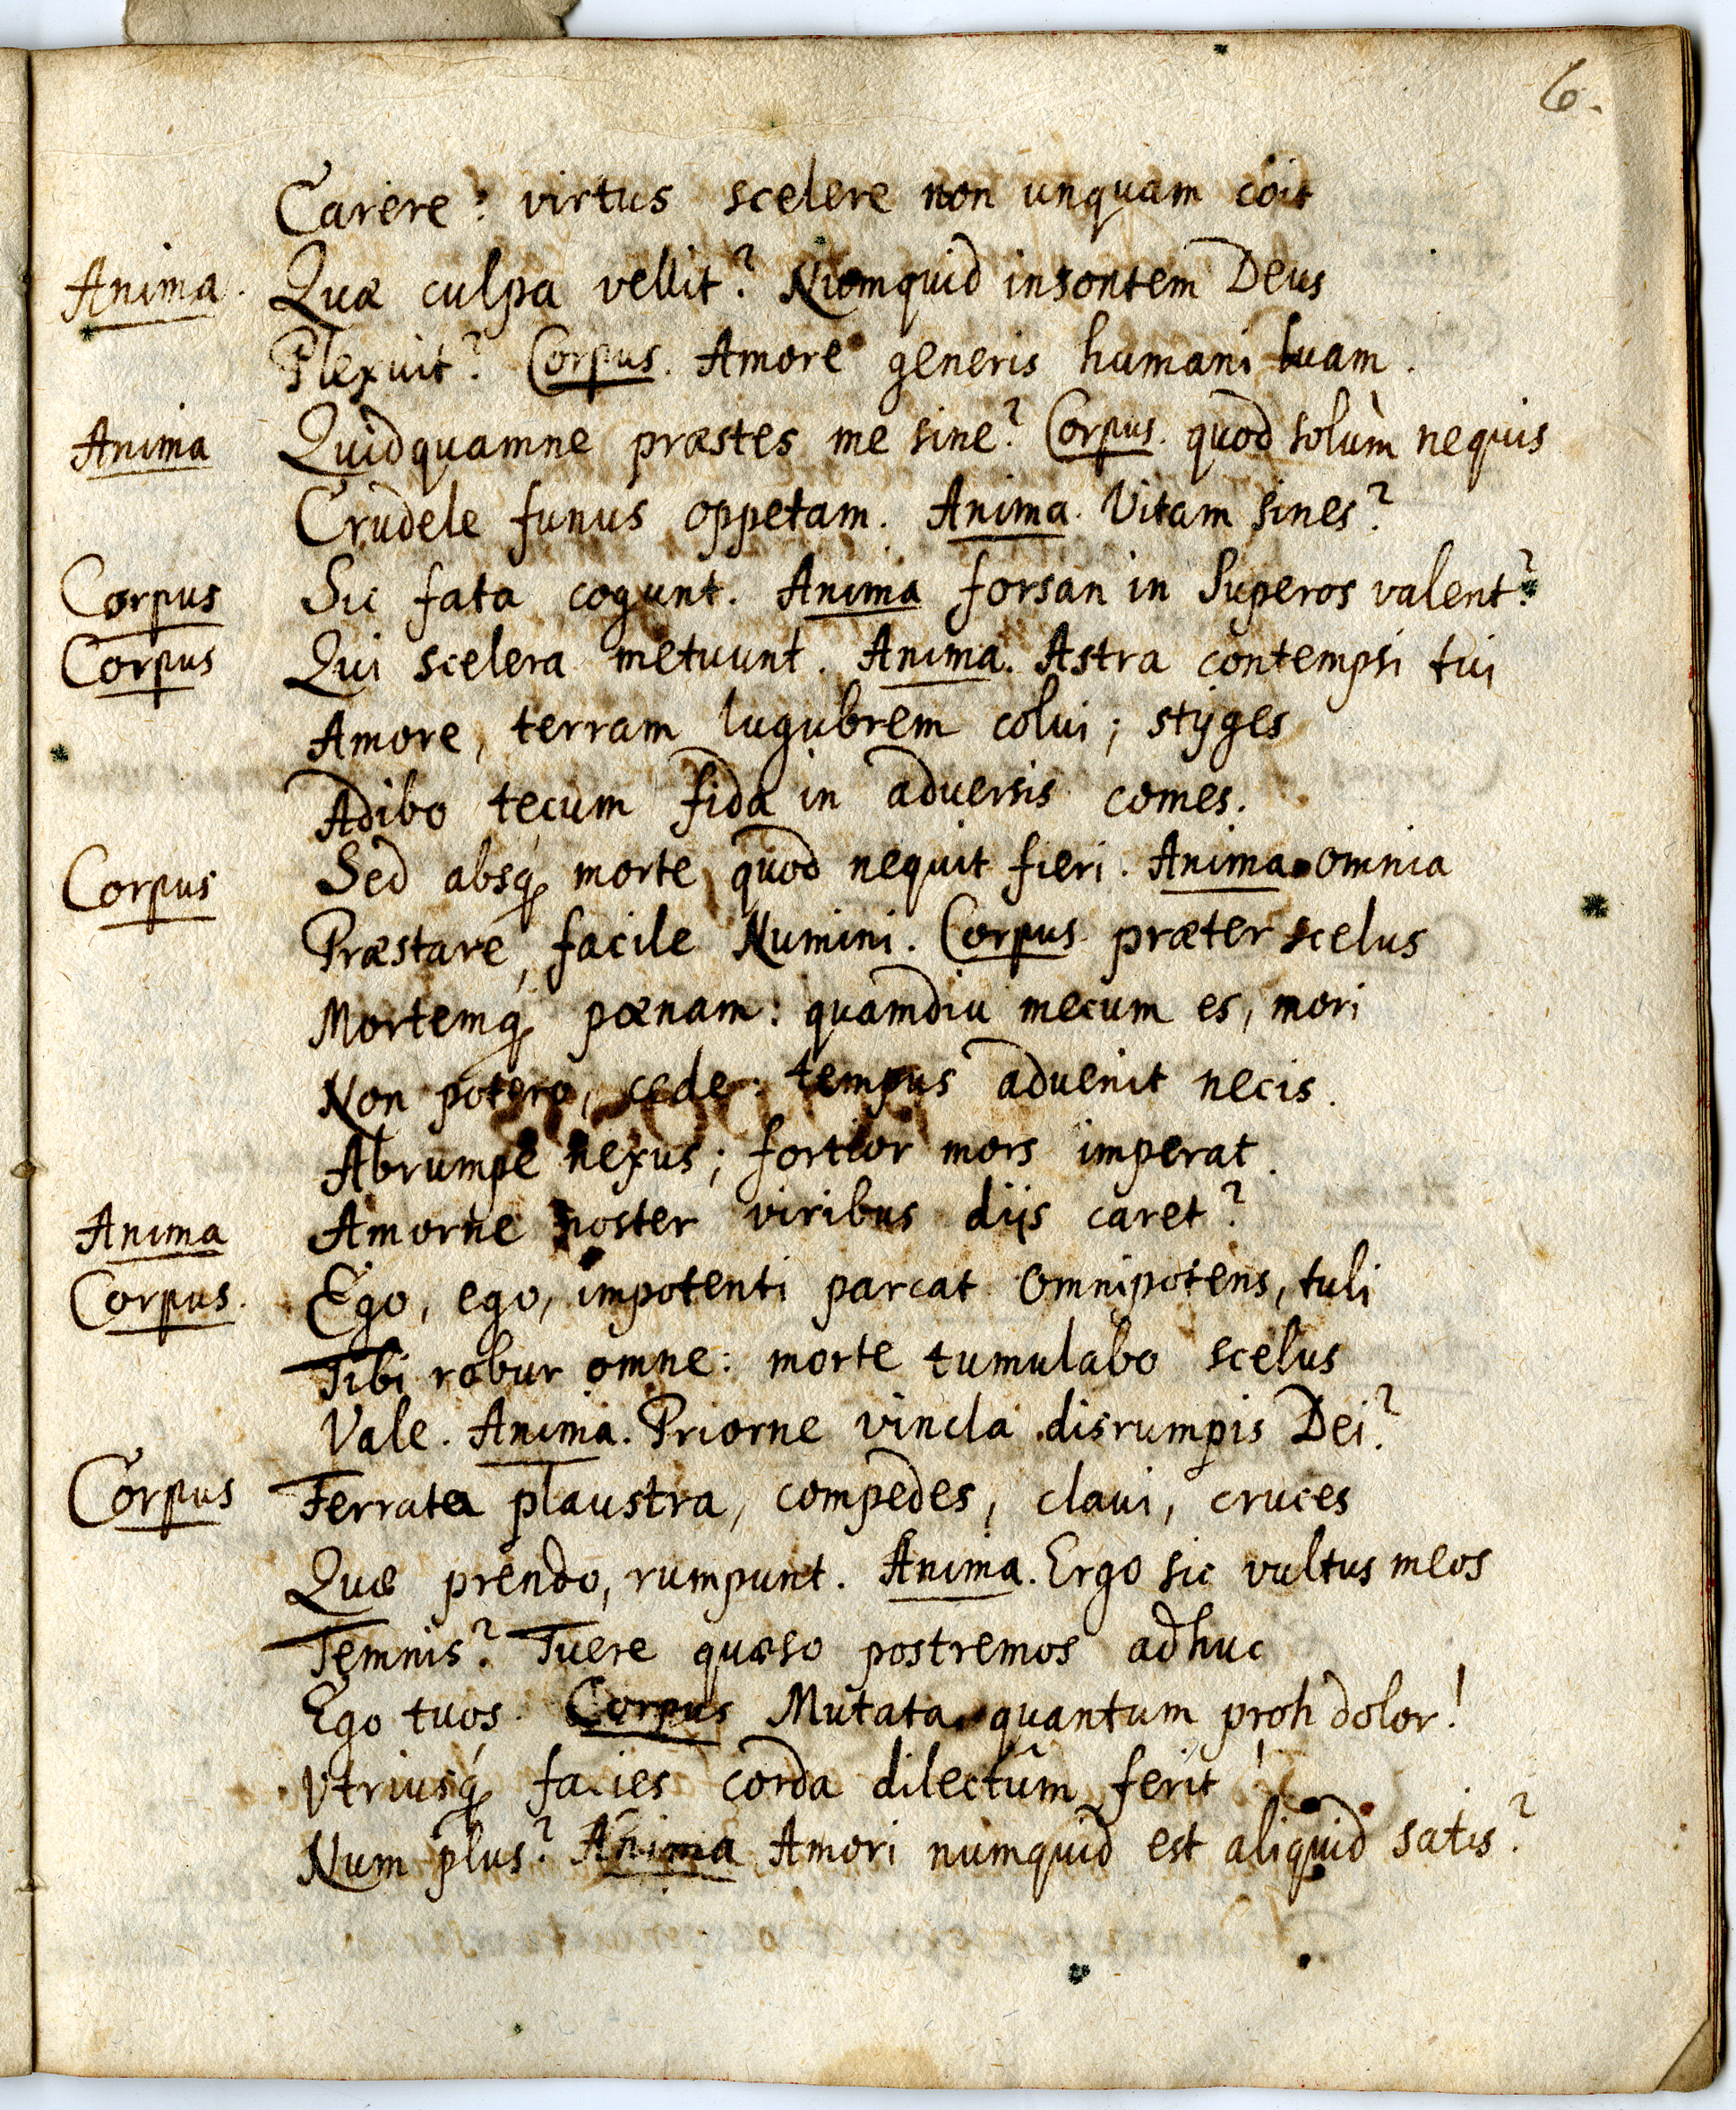 6.
Carere? virtus scelere non unquam coit
Anima. Quæ culpa vellit? Numquid insontem Deus
Plexuit? Corpus. Amore generis humani luam.
Anima Quidquamne præstes me sine? Corpus. quod solùm nequis
Crudele funus oppetam. Anima. Vitam sines?
Corpus Sic fata cogunt. Anima forsan in Superos valent?
Corpus Qui scelera metuunt. Anima. Astra contempsi tui
Amore, terram lugubrem colui; stÿges
Adibo tecum fida in adversis comes.
Corpus Sed absq́; morte, quod nequit fieri. Anima omnia
Præstare, facile Numini. Corpus præter scelus
Mortemq́; pœnam: quamdiu mecum es, mori
Non potero, cede: tempus advenit necis.
Abrumpe nexus; fortior mors imperat.
Anima Amorne noster viribus diis caret?
Corpus. Ego, ego, impotenti parcat Omnipotens, tuli
Tibi robur omne: morte tumulabo scelus
Vale. Anima. Priorne vincla disrumpis Dei?
Corpus Ferrata plaustra, compedes, clavi, cruces
Quæ prendo, rumpunt. Anima. Ergo sic vultus meos
Temnis? Tuere quæso postremos adhuc
Ego tuos. Corpus Mutata quantum proh dolor!
Vtriusq́; facies corda dilectûm ferit!
Num plus? Anima Amori numquid est aliquid satis?